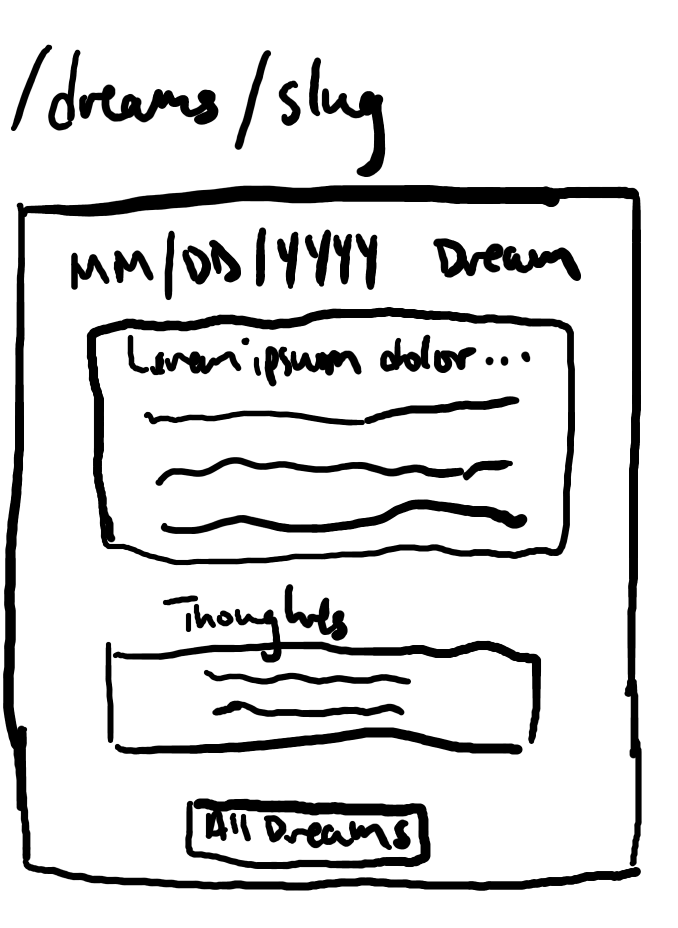 /dreams/slug
MM/DD/YYYY Dream
Lorem ipsum dolor...
Thoughts
All Dreams